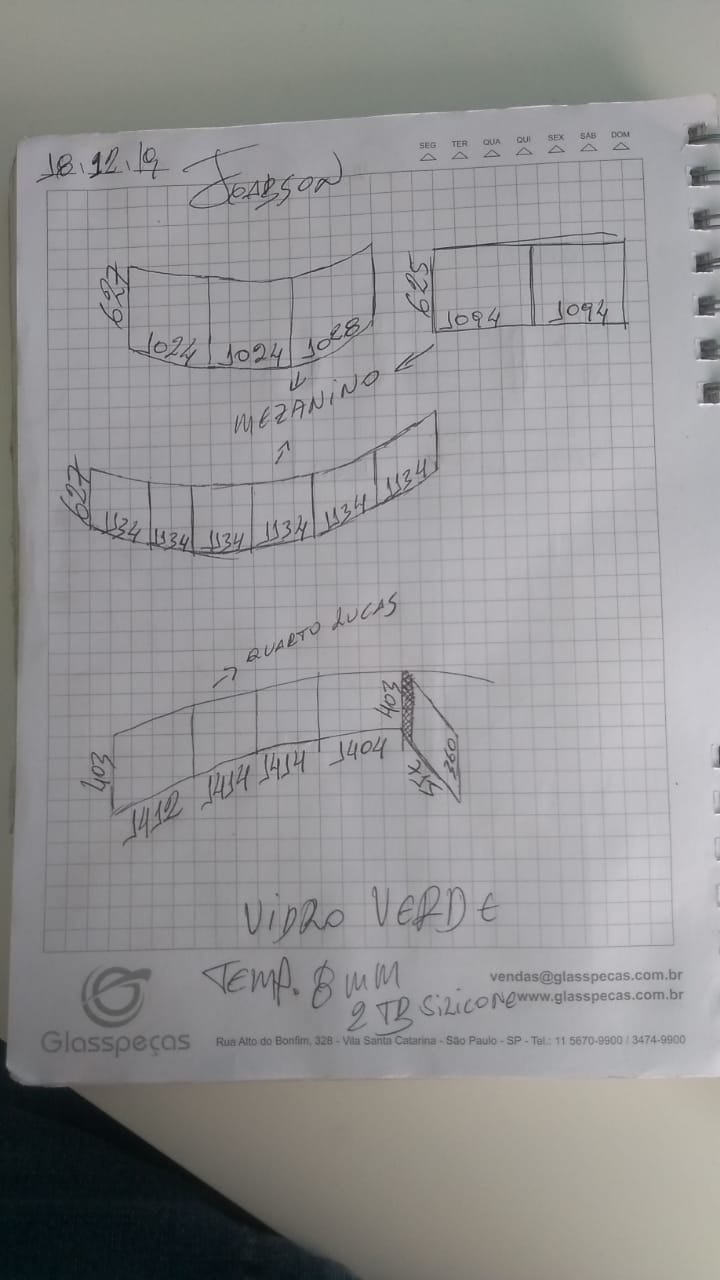 SEG TER QUA QUI SEX SÁB DOM
18.12.19 JOABSON
627 1024 1024 1028
625 1094 1094
MEZANINO
627 1134 1134 1134 1134 1134 1134
QUARTO LUCAS
403 1412 1414 1414 1404 403
360
VIDRO VERDE
TEMP. 8 MM
2 TB SILICONE
Glasspeças
vendas@glasspecas.com.br
www.glasspecas.com.br
Rua Alto do Bonfim, 328 - Vila Santa Catarina - São Paulo - SP - Tel.: 11 5670-9900 / 3474-9900